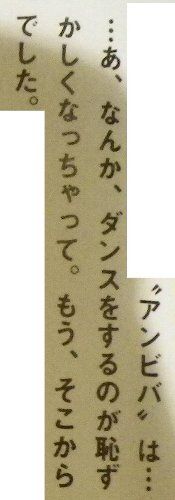 〝アンビバ〟は…
…あ、なんか、ダンスをするのが恥ず
かしくなっちゃって。もう、そこから
でした。